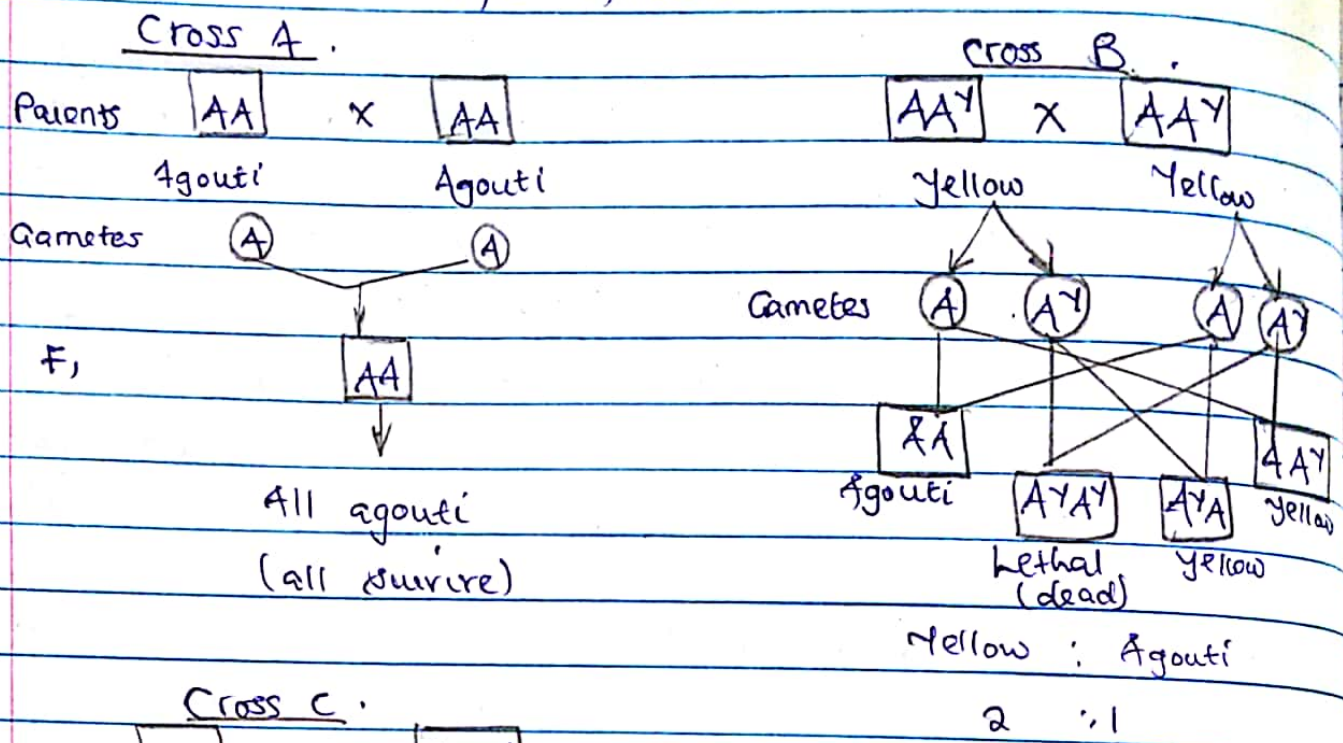 Cross A.
Parents AA x AA
Agouti Agouti
Gametes A A
F1
AA
All agouti
(all survive)
Cross B.
AAʸ x AAʸ
Yellow Yellow
Gametes A Aʸ A Aʸ
AA AʸAʸ AʸA AAʸ
Agouti Lethal (dead) Yellow Yellow
Yellow : Agouti
2 : 1
Cross C.